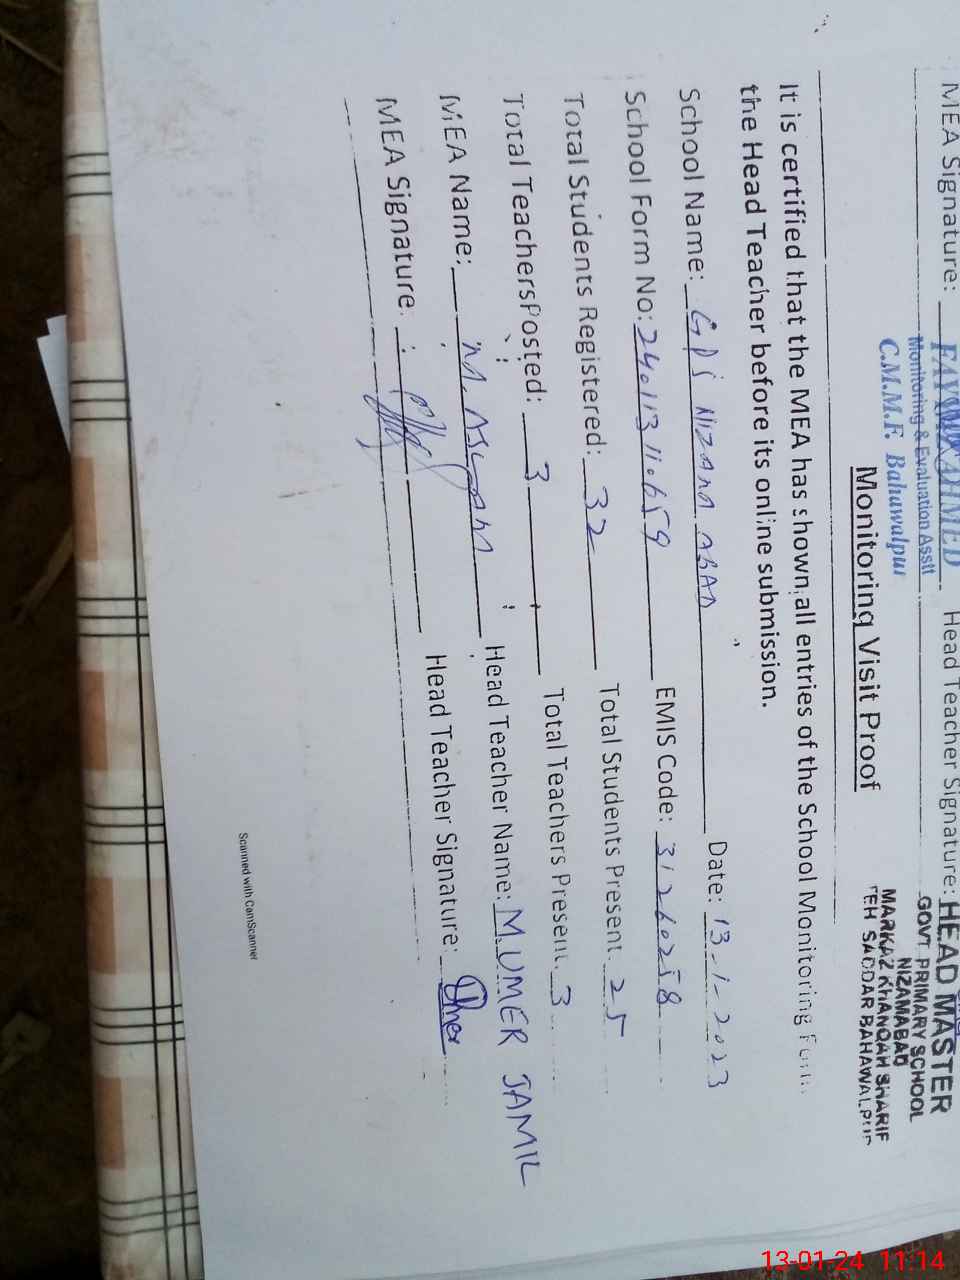 MEA Signature: Head Teacher Signature:
FAYYAZ AHMED
Monitoring & Evaluation Asstt
C.M.M.F. Bahawalpur
HEAD MASTER
GOVT PRIMARY SCHOOL
NIZAMABAD
MARKAZ KHANQAH SHARIF
TEH SADDAR BAHAWALPUR
Monitoring Visit Proof
It is certified that the MEA has shown all entries of the School Monitoring Form
the Head Teacher before its online submission.
School Name: GPS NIZAM ABAD Date: 13-1-2023
School Form No: 240113110659 EMIS Code: 31260258
Total Students Registered: 32 Total Students Present 25
Total TeachersPosted: 3 Total Teachers Present 3
MEA Name: M ASLAM Head Teacher Name: M.UMER JAMIL
MEA Signature: Head Teacher Signature: Umer
Scanned with CamScanner
13-01-24 11:14